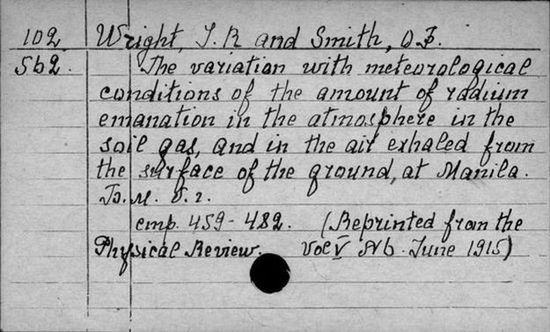 102 Wright, J. R. and Smith, O. F.
Sb2. The variation with meteorological
conditions of the amount of radium
emanation in the atmosphere in the
soil gas, and in the air exhaled from
the surface of the ground, at Manila.
459-482. (Reprinted from the
Physical Review. Vol V No. June 1915)